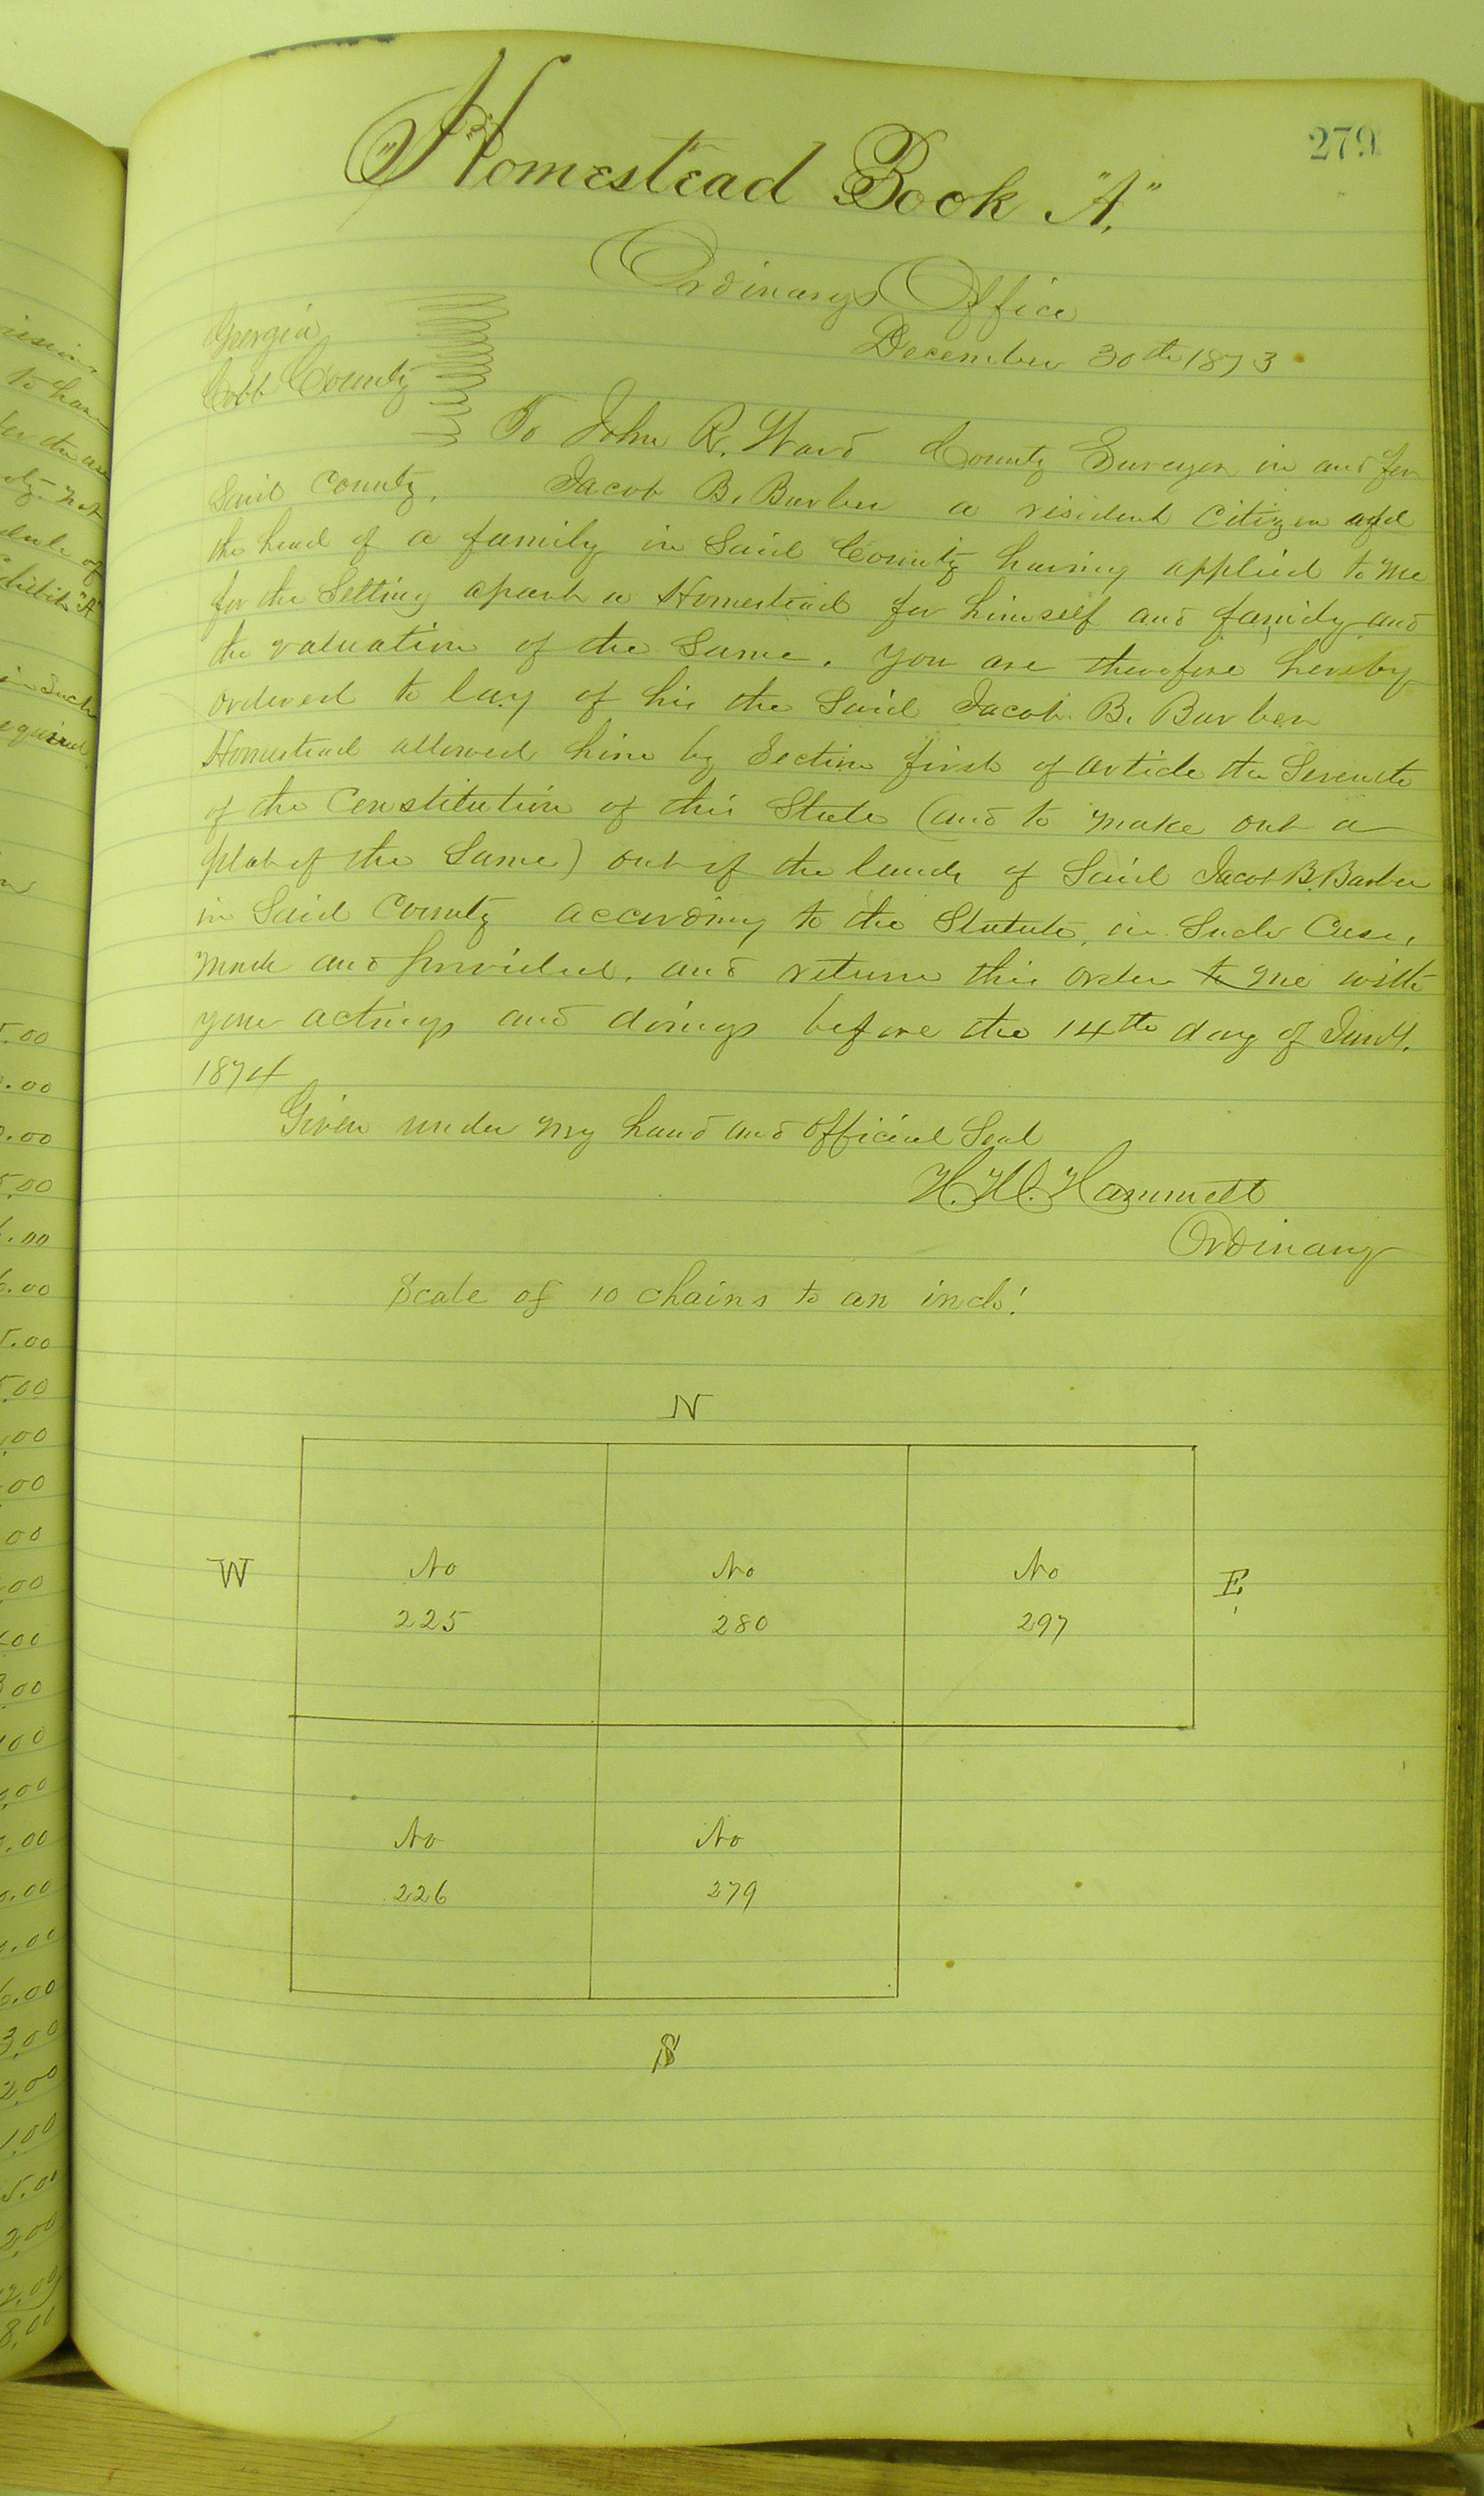 279
"Homestead Book "A."
Ordinarys Office
Georgia
December 30th 1873
Cobb County
To John R. Ward County Surveyor in and for
Said County. Jacob B. Barber a resident Citizen and
the head of a family in Said County having applied to me
for the Setting apart a Homestead for himself and family and
the valuation of the Same. You are therefore hereby
ordered to lay of his the Said Jacob B. Barber
Homestead allowed him by Section first of article the Seventh
of the Constitution of this State (and to make out a
plat of the Same) out of the lands of Said Jacob B. Barber
in Said County according to the Statute, in Such Case,
made and provided, and return this order to me with
your actings and doings before the 14th day of Jany.
1874
Given under my hand and official Seal
H. M. Hammett
Ordinary
Scale of 10 chains to an inch!
N
W
No
225
No
280
No
297
E
No
226
No
279
S
to
of
"A"
Such
5.00
.00
.00
5.00
.00
6.00
5.00
5.00
.00
.00
00
.00
.00
.00
.00
.00
.00
.00
.00
6.00
3.00
2.00
1.00
5.00
2.00
2.00
8.00